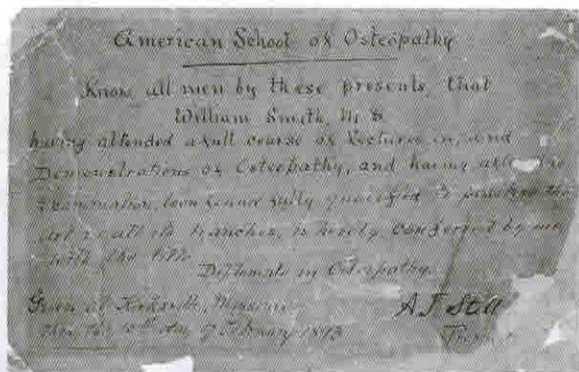 American School of Osteopathy
Know all men by these presents, that
William Smith, M.D.
having attended a full course of Lectures in, and
Demonstrations of Osteopathy, and having after
Examination been found fully qualified to practice the
art in all its branches, is hereby conferred by me
with the title
Diplomate in Osteopathy.
Given at Kirksville, Missouri
this the 15th day of February 1893
A T Still